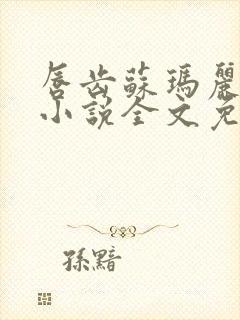 唇齿蘇瑪麗
小說全文免
孫黯